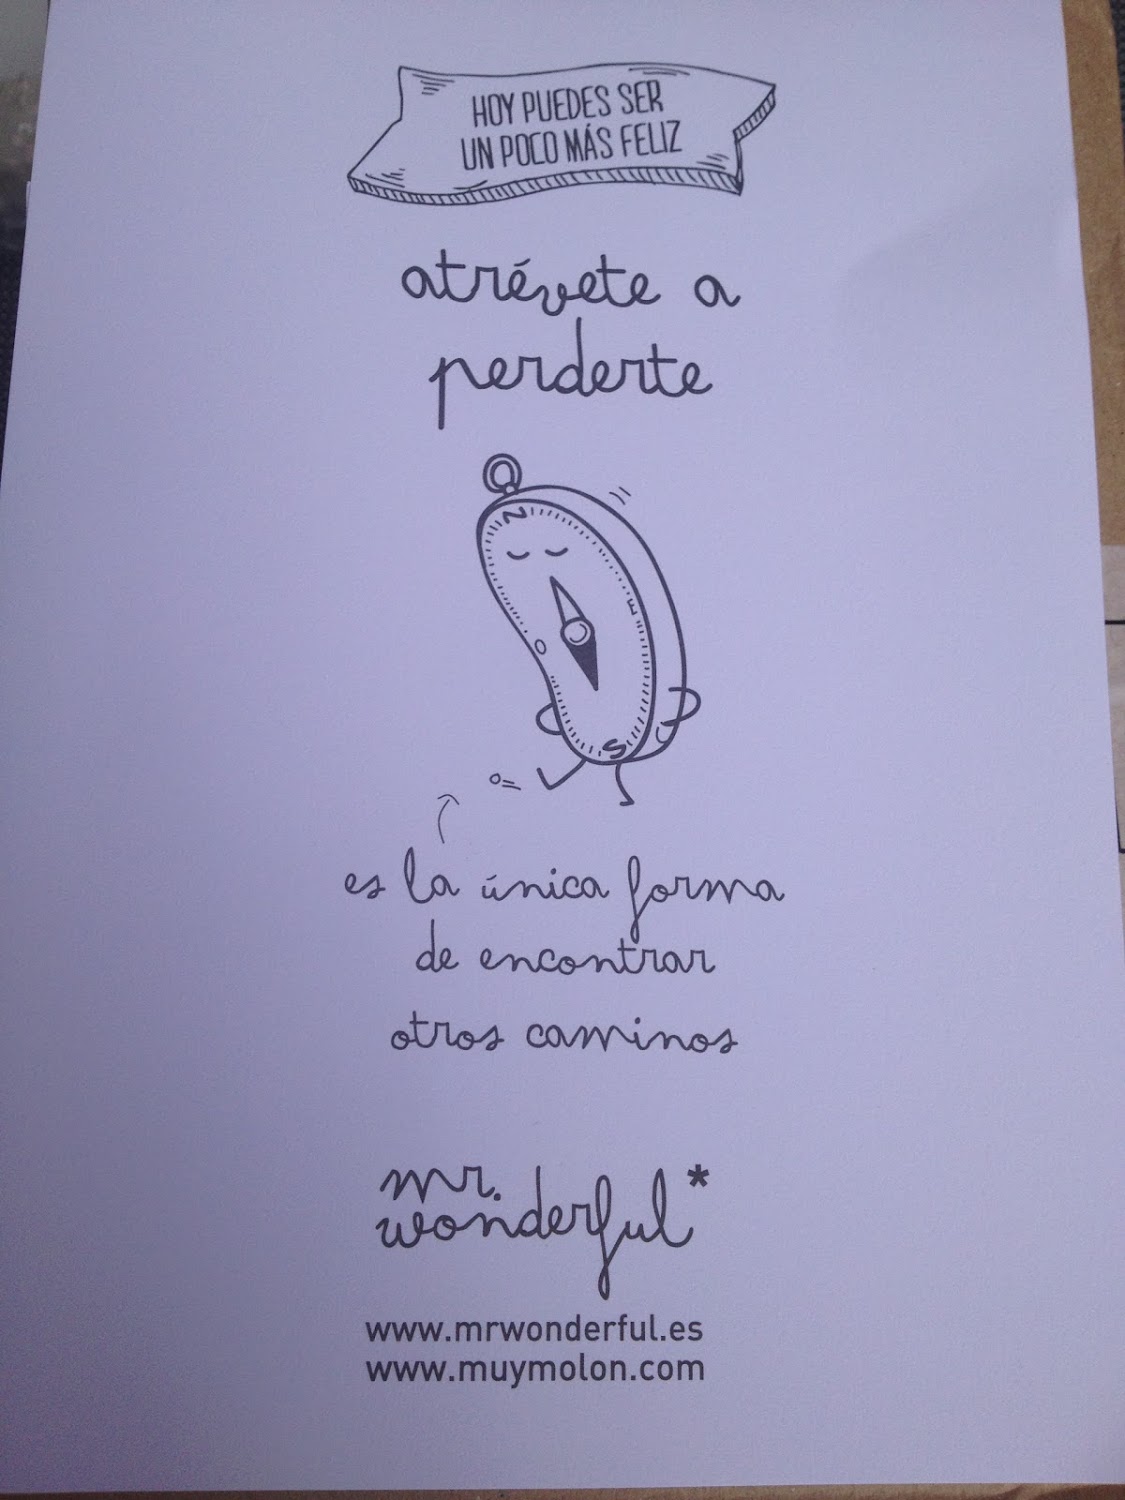 HOY PUEDES SER
UN POCO MÁS FELIZ
atrévete a
perderte
N
E
O
S
es la única forma
de encontrar
otros caminos
mr.
wonderful*
www.mrwonderful.es
www.muymolon.com